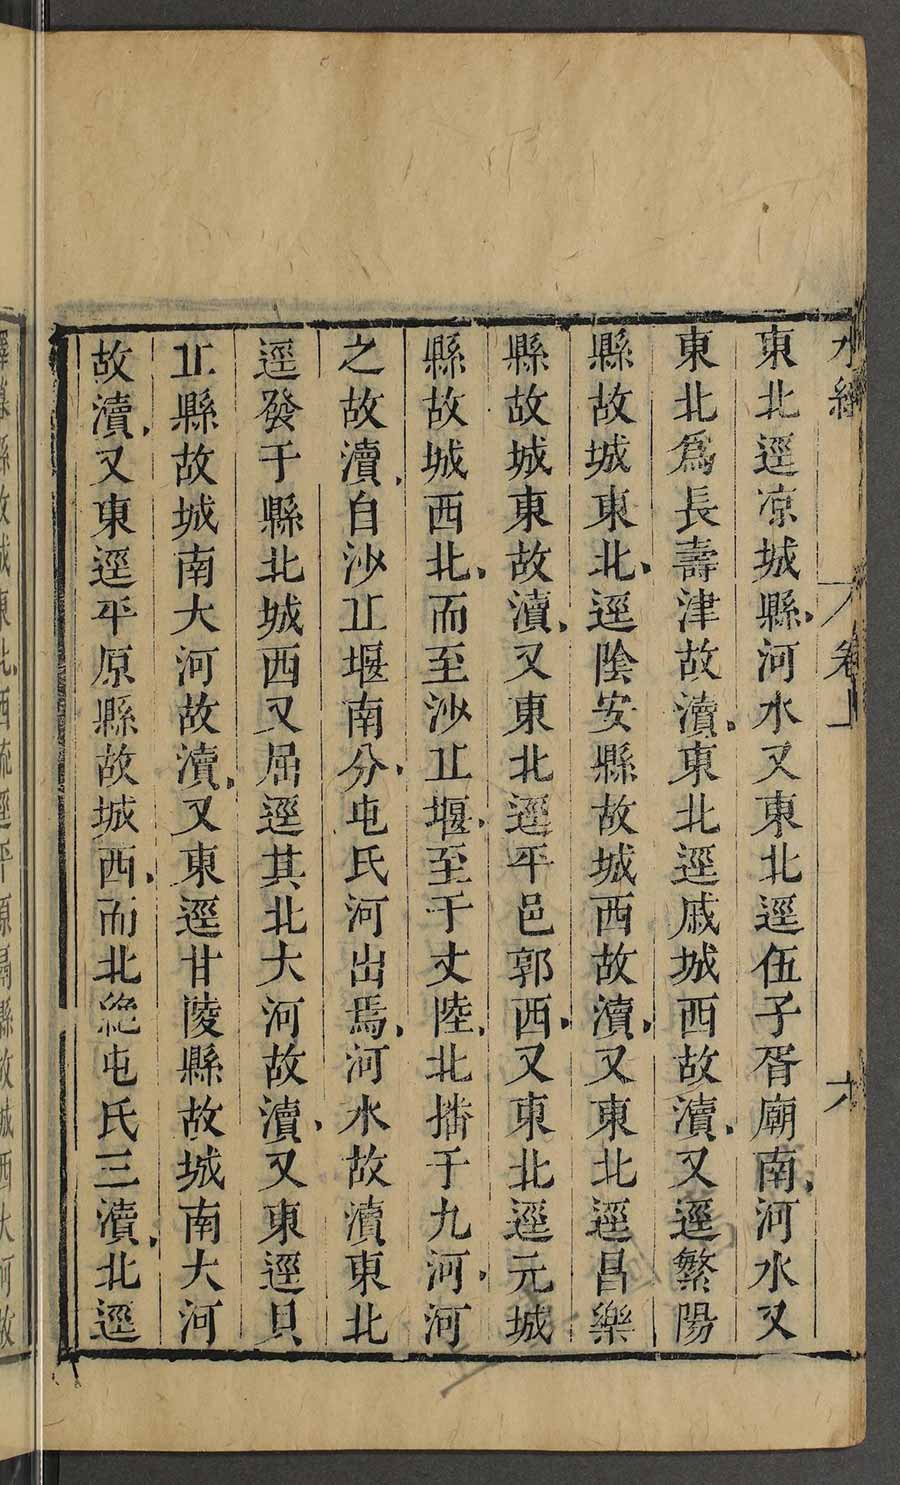 水經 卷上 六
東北逕凉城縣河水又東北逕伍子胥廟南河水又
東北爲長壽津故瀆東北逕戚城西故瀆又逕繁陽
縣故城東北逕陰安縣故城西故瀆又東北逕昌樂
縣故城東故瀆又東北逕平邑郭西又東北逕元城
縣故城西北而至沙丘堰至于丈陸北播于九河河
之故瀆自沙丘堰南分屯氏河出焉河水故瀆東北
逕發于縣北城西又屈逕其北大河故瀆又東逕貝
丘縣故城南大河故瀆又東逕甘陵縣故城南大河
故瀆又東逕平原縣故城西而北絶屯氏三瀆北逕
縣故城東北西流逕平原鬲縣故城西大河故